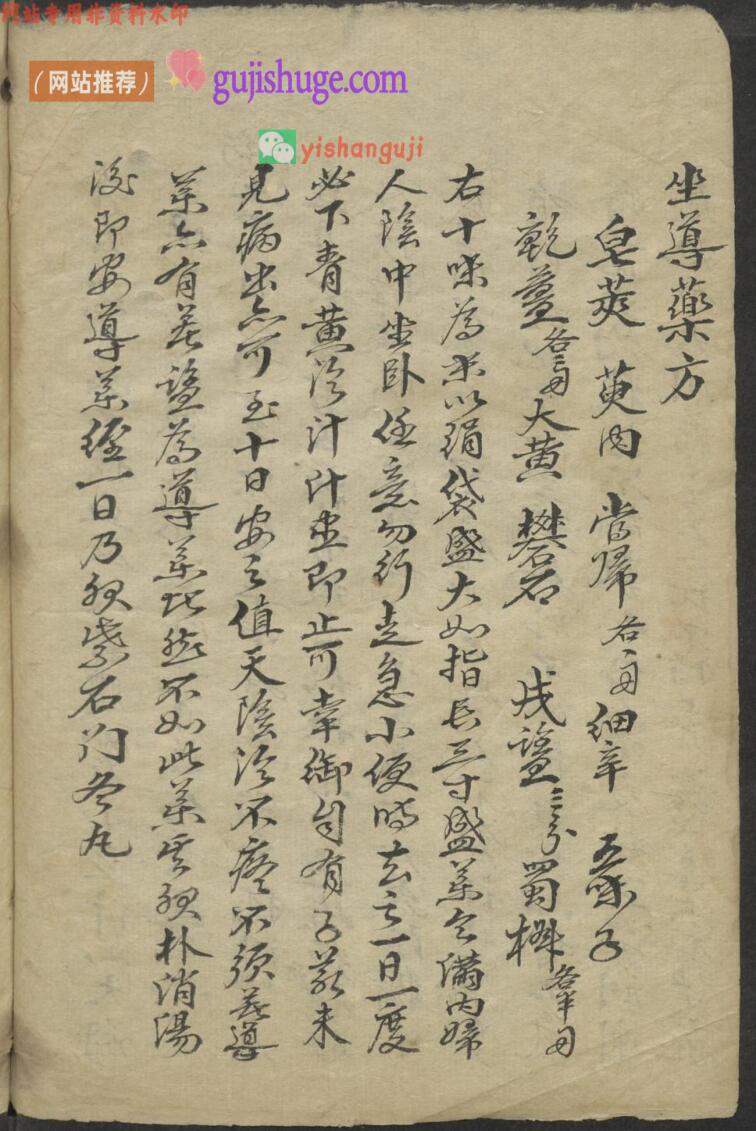 网站专用非资料水印
(网站推荐)
gujishuge.com
yishanguji
坐導藥方
皂莢 萸肉 當歸各一両 細辛 五味子
乾薑各二両 大黄 礬石 戎盐二分 蜀椒各半両
右十味為末以絹袋盛大如指長三寸盛薬令滿内婦
人陰中坐卧任意勿行走急小便時去之一日一度
必下青黄冷汁汁盡即止可幸御自有子若未
見病出亦可至十日安之值天陰冷不疼不須著導
薬亦有著盐為導薬然不如此薬其服朴消湯
後即安導薬經一日乃服紫石门冬丸